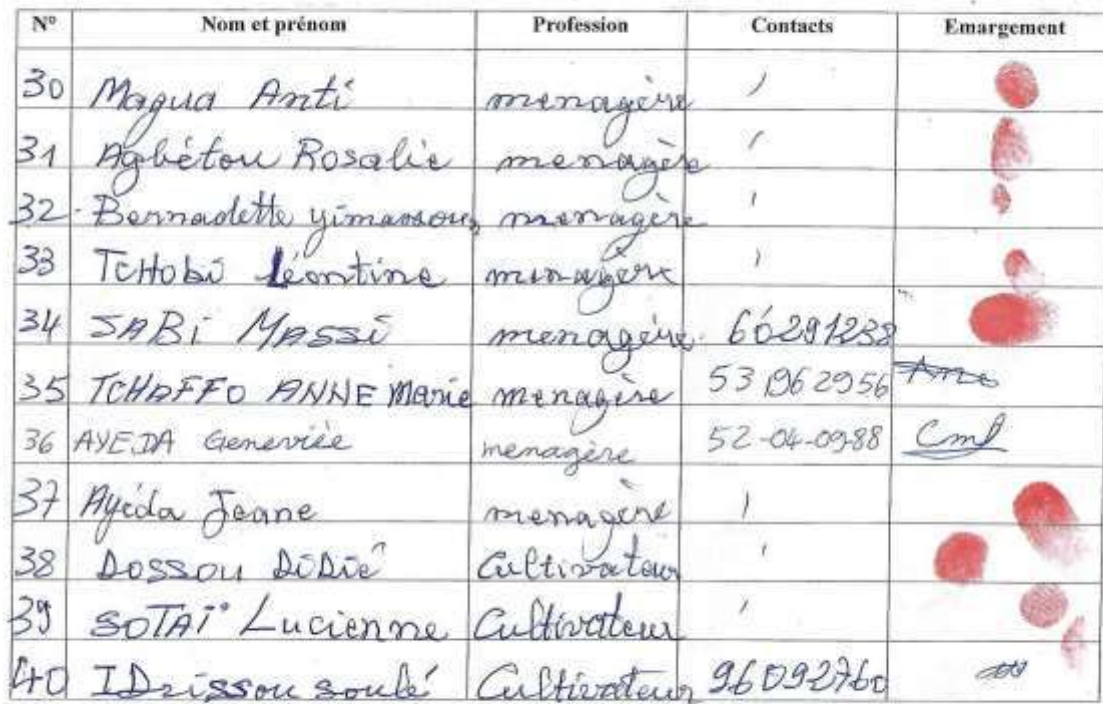 N° Nom et prénom Profession Contacts Emargement
30 Magua Anti menagère /
31 Agbétou Rosalie menagère /
32 Bernadette yimassou menagère /
33 TCHobi Léontine menagère /
34 SABi MASSi menagère 60291238
35 TCHAFFO ANNE Marie menagère 53 1962956
36 AYEDA Geneviée menagère 52-04-09-88
37 Ayéda Jeane menagère /
38 DOSSOU DiDié Cultivateur /
39 SOTAÏ Lucienne Cultivateur /
40 IDrissou soulé Cultivateur 96092760